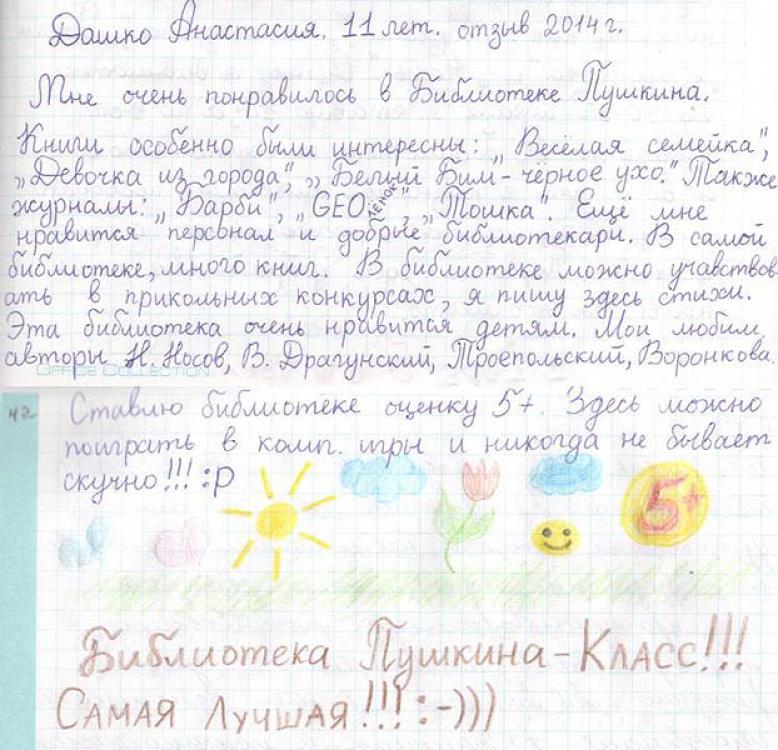 Дашко Анастасия. 11 лет. отзыв 2014 г.
Мне очень понравилось в Библиотеке Пушкина.
Книги особенно были интересны: „Весёлая семейка",
„Девочка из города", „Белый Бим - чёрное ухо." Также
журналы: „Барби", „GEOлёнок", „Тошка". Ещё мне
нравится персонал и добрые библиотекари. В самой
библиотеке, много книг. В библиотеке можно учавствов
ать в прикольных конкурсах, я пишу здесь стихи.
Эта библиотека очень нравится детям. Мои любим.
авторы Н. Носов, В. Драгунский, Троепольский, Воронкова.
OFFICE COLLECTION
42 Ставлю библиотеке оценку 5+. Здесь можно
поиграть в комп. игры и никогда не бывает
скучно!!! :р
5+
Библиотека Пушкина - Класс!!!
Самая Лучшая!!! :-)))